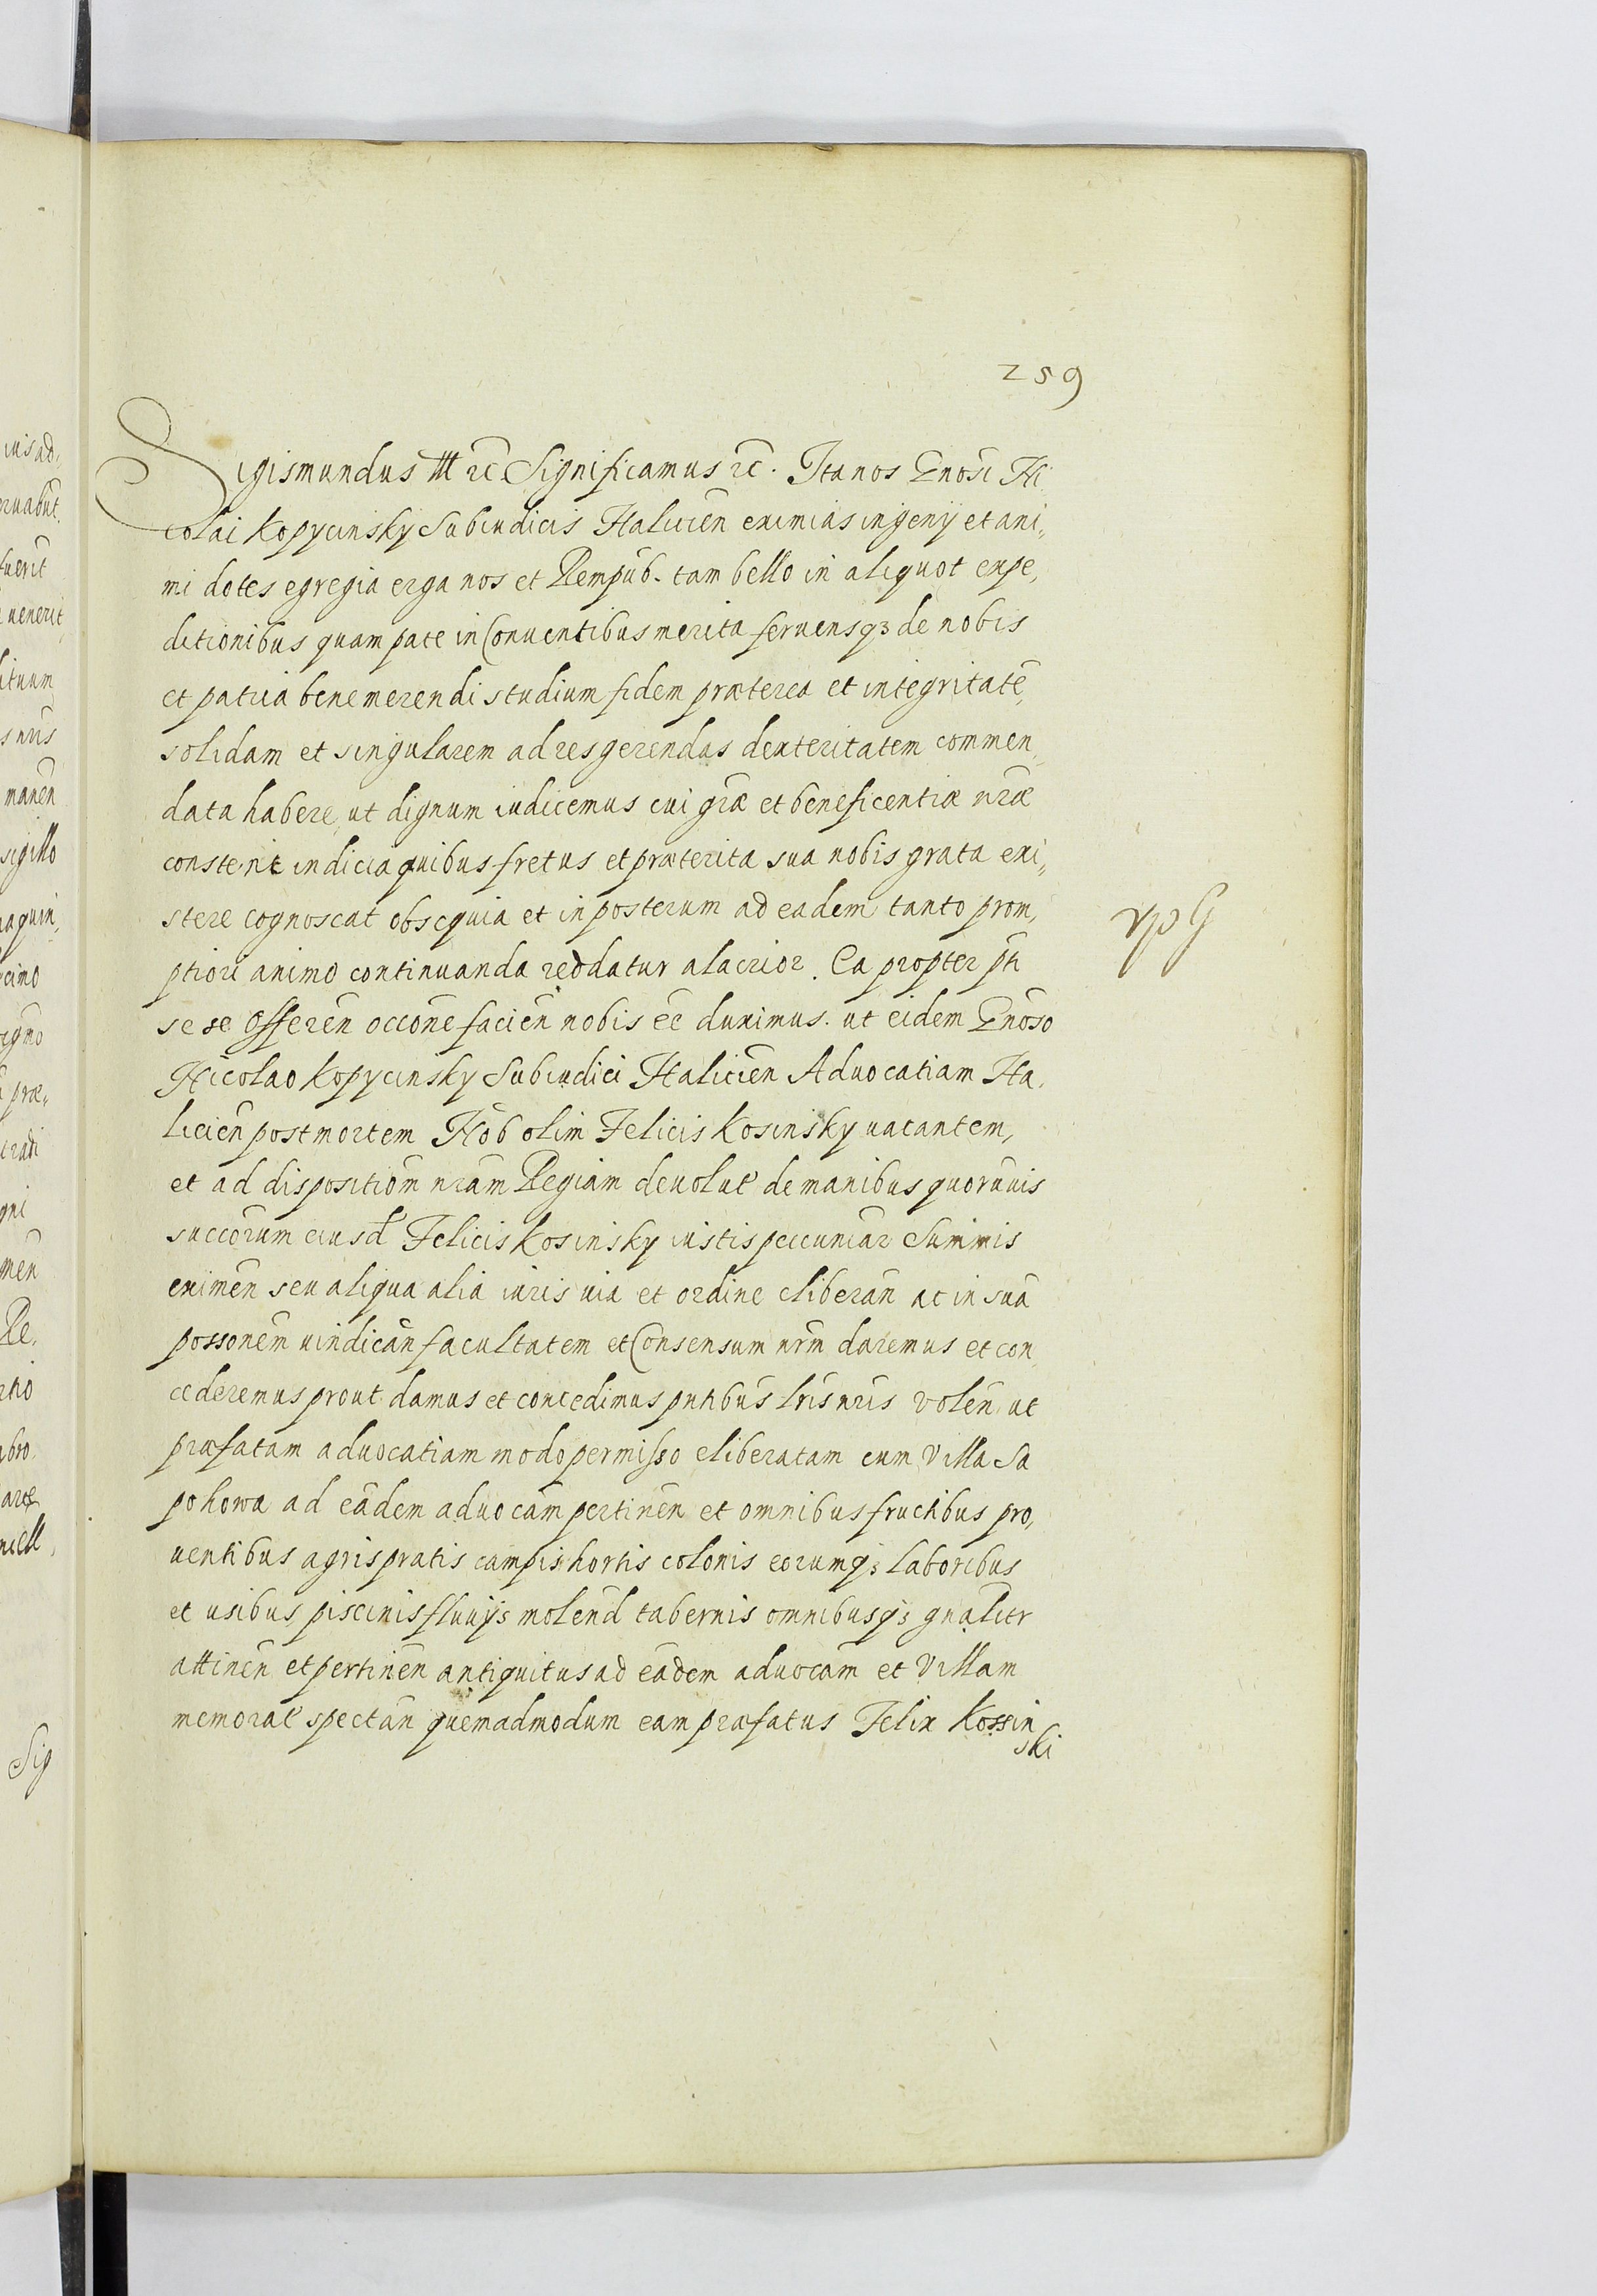 259
Sigismundus III etc Significamus etc. Ita nos Gnosi Ni
colai Kopycinsky Subiudicis Halicien eximias ingenij et ani„
mi dotes egregia erga nos et Rempub. tam bello in aliquot expe,
ditionibus quam pace in Conventibus merita fervensq3 de nobis
et patria benemerendi studium fidem præterea et integritatē,
solidam et singularem ad res gerendas dexteritatem commen,
data habere, ut dignum iudicemus cui grāe et beneficentiæ nrāe
constent indicia quibus fretus et præterita sua nobis grata exi„
stere cognoscat obsequia et in posterum ad eadem tanto prom,
ptiori animo continuanda reddatur alacrior. Ea propter pti
sese Offeren occone facien nobis ēe duximus. ut eidem Gnōso
Nicolao Kopycinsky Subiudici Halicien Advocatiam Ha,
licien post mortem Nōb olim Felicis Kosinsky vacantem,
et ad dispositiōm nrām Regiam devolut de manibus quorūvis
succōrum eiusd Felicis Kosinsky iustis peccuniar Summis
eximēn seu aliqua alia iuris via et ordine eliberān ac in suā
possonēm vindicān facultatem et Consensum nrm daremus et con,
cederemus prout damus et concedimus pntibus lris nris volēn ut
præfatam advocatiam modo permisso eliberatam cum Villa Sa
pohowa ad eādem advocām pertinēn et omnibus fructibus pro,
ventibus agris pratis campis hortis colonis eorumq3 laboribus
et usibus piscinis fluvijs molend tabernis omnibusq3 gnalitr
attinēn et pertinēn antiquitus ad eādem advocām et Villam
memorat spectān quemadmodum eam præfatus Felix Kossin
ski
vpG